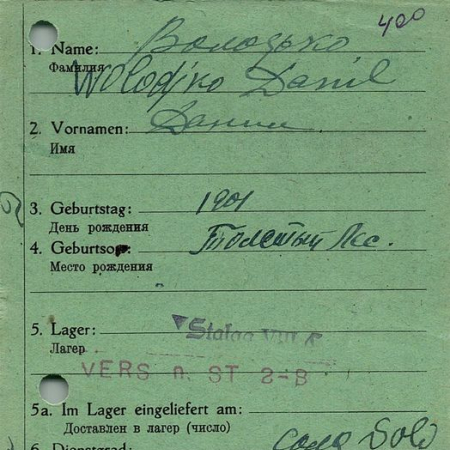 400
1. Name: Володько
Фамилия Wolodjko Danil
2. Vornamen: Данил
Имя
3. Geburtstag: 1901
День рождения
4. Geburtsort: Толстый Лес.
Место рождения
5. Lager: Stalag VIII
Лагер
VERS n. ST 2-B
5a. Im Lager eingeliefert am:
Доставлен в лагер (число)
6. Dienstgrad: солд Sold